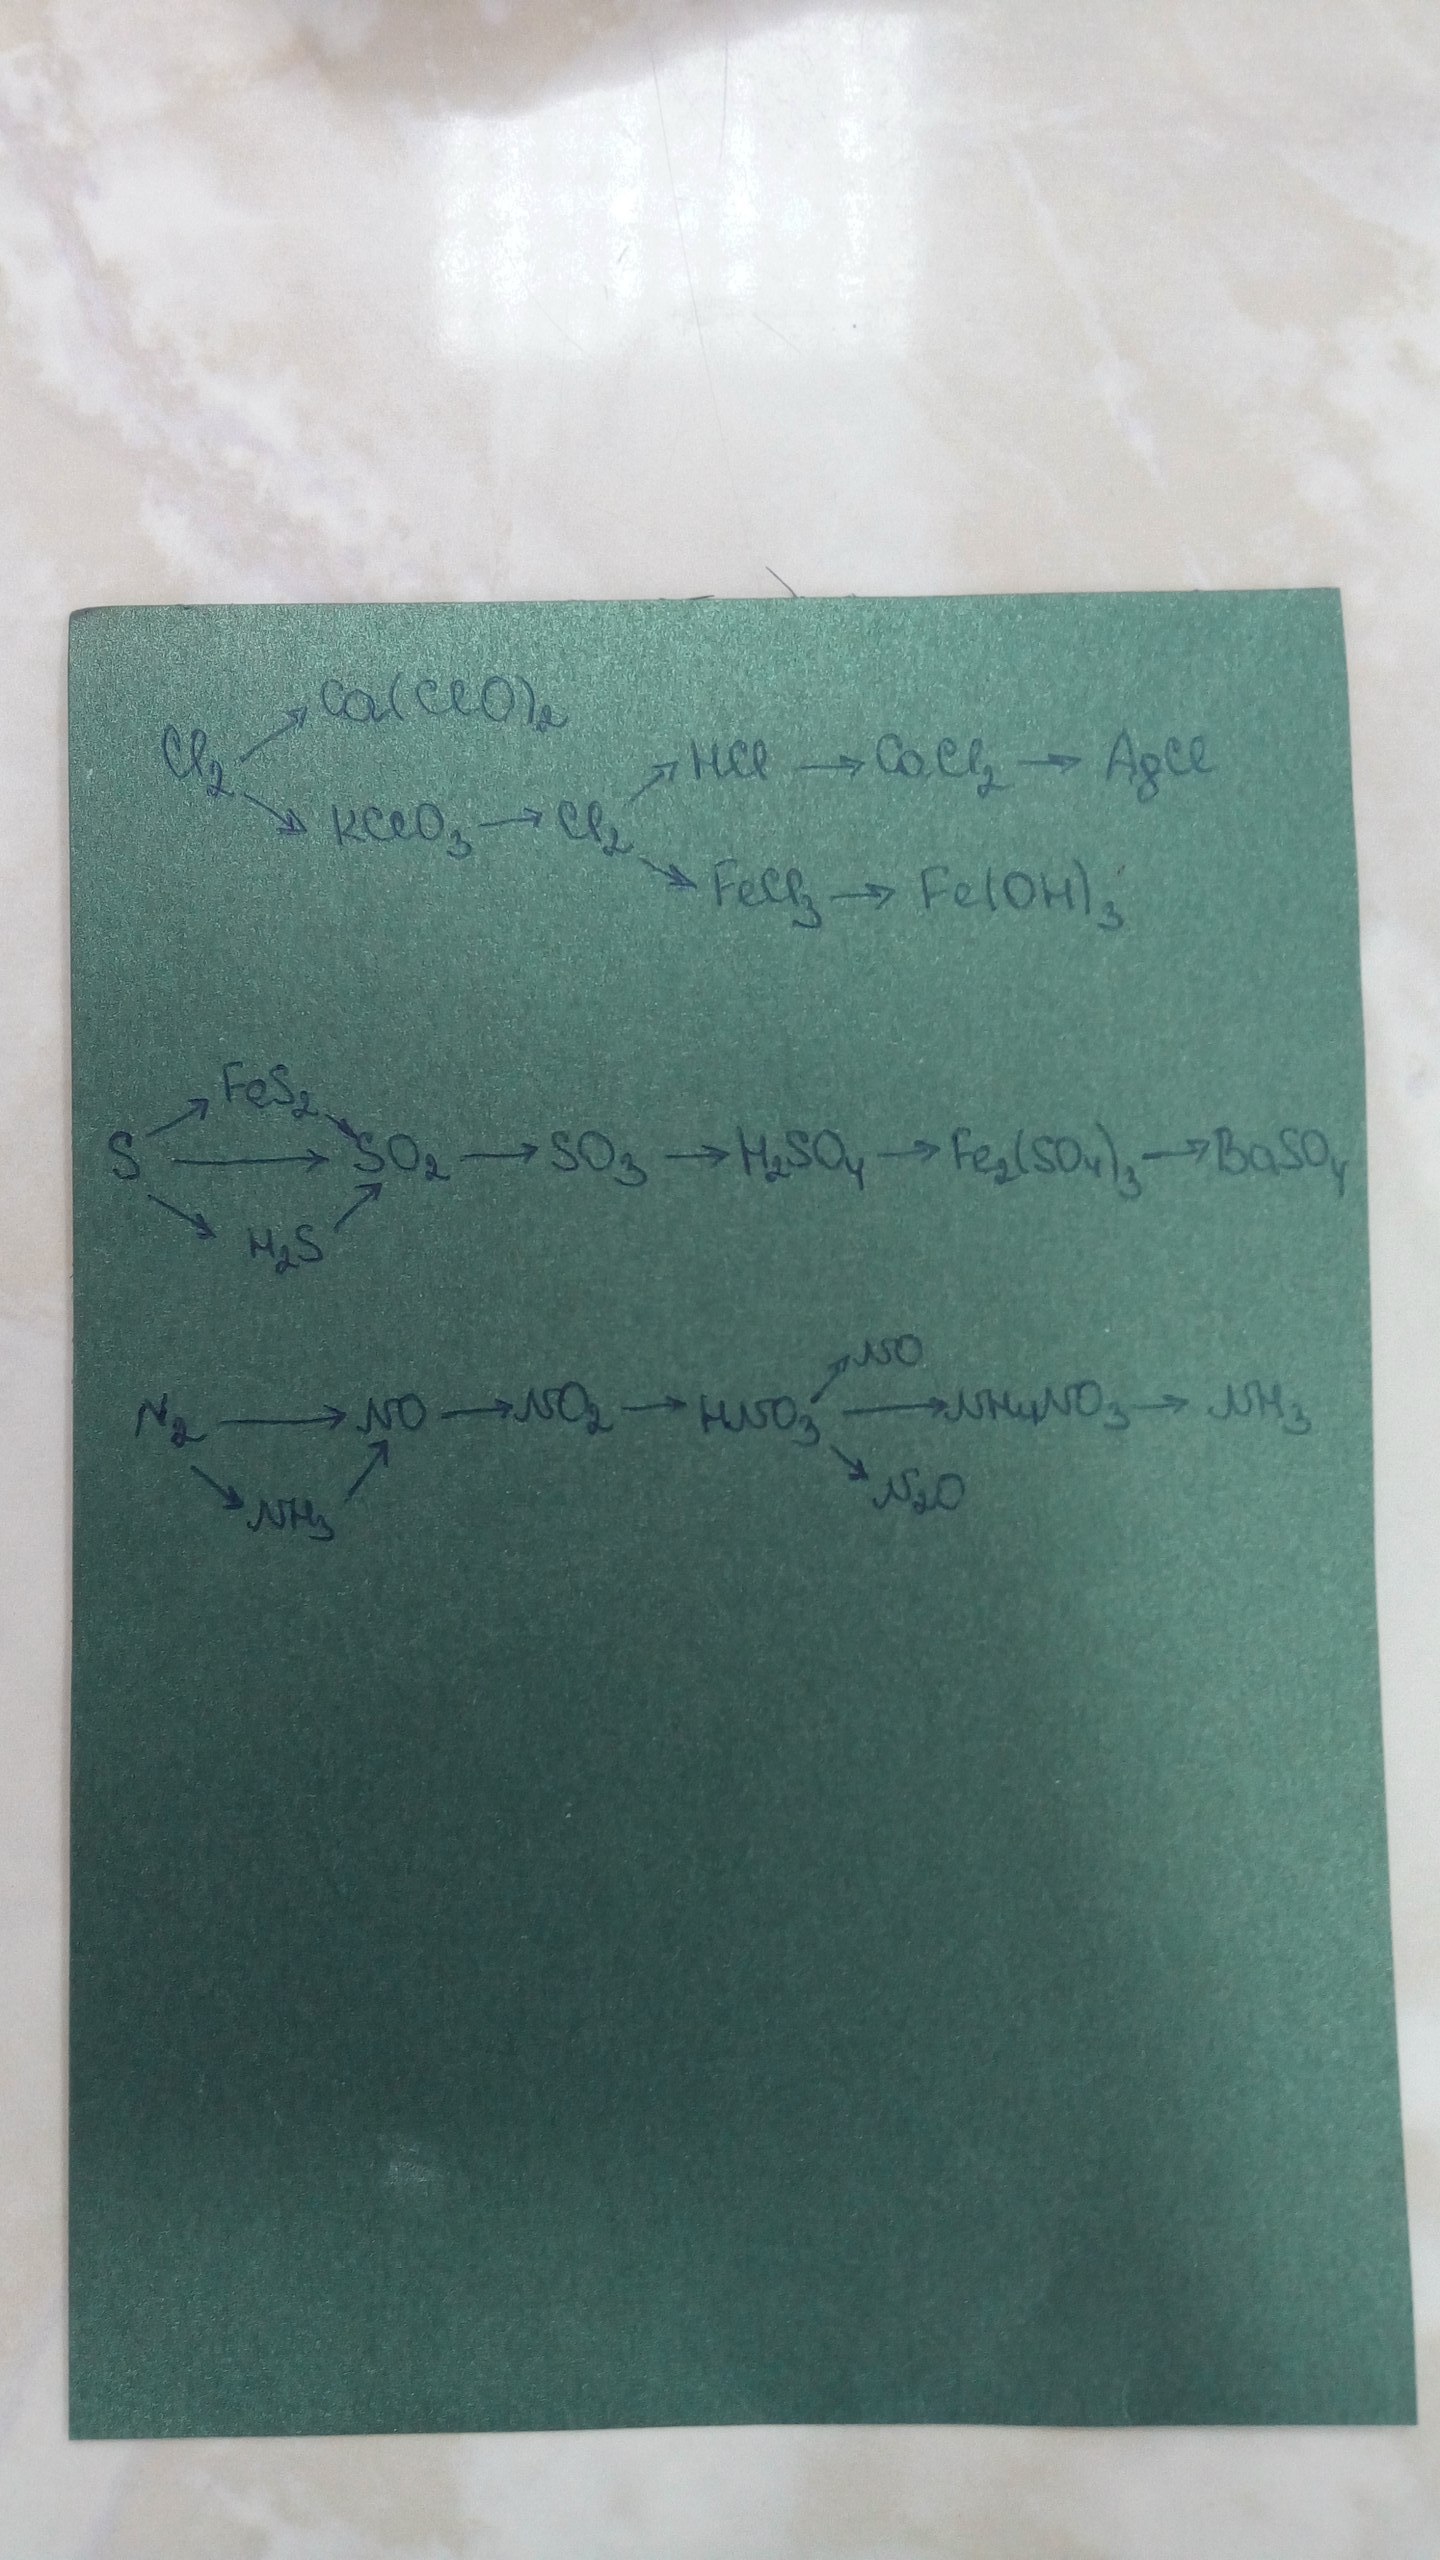 Cl₂ ↗ Ca(ClO)₂
Cl₂ ↘ KClO₃ → Cl₂ ↗ HCl → CaCl₂ → AgCl
Cl₂ ↘ FeCl₃ → Fe(OH)₃
S ↗ FeS₂ ↘
S → SO₂ → SO₃ → H₂SO₄ → Fe₂(SO₄)₃ → BaSO₄
↘ H₂S ↗
↗ NO
N₂ → NO → NO₂ → HNO₃ → NH₄NO₃ → NH₃
↘ NH₃ ↗ ↘ N₂O